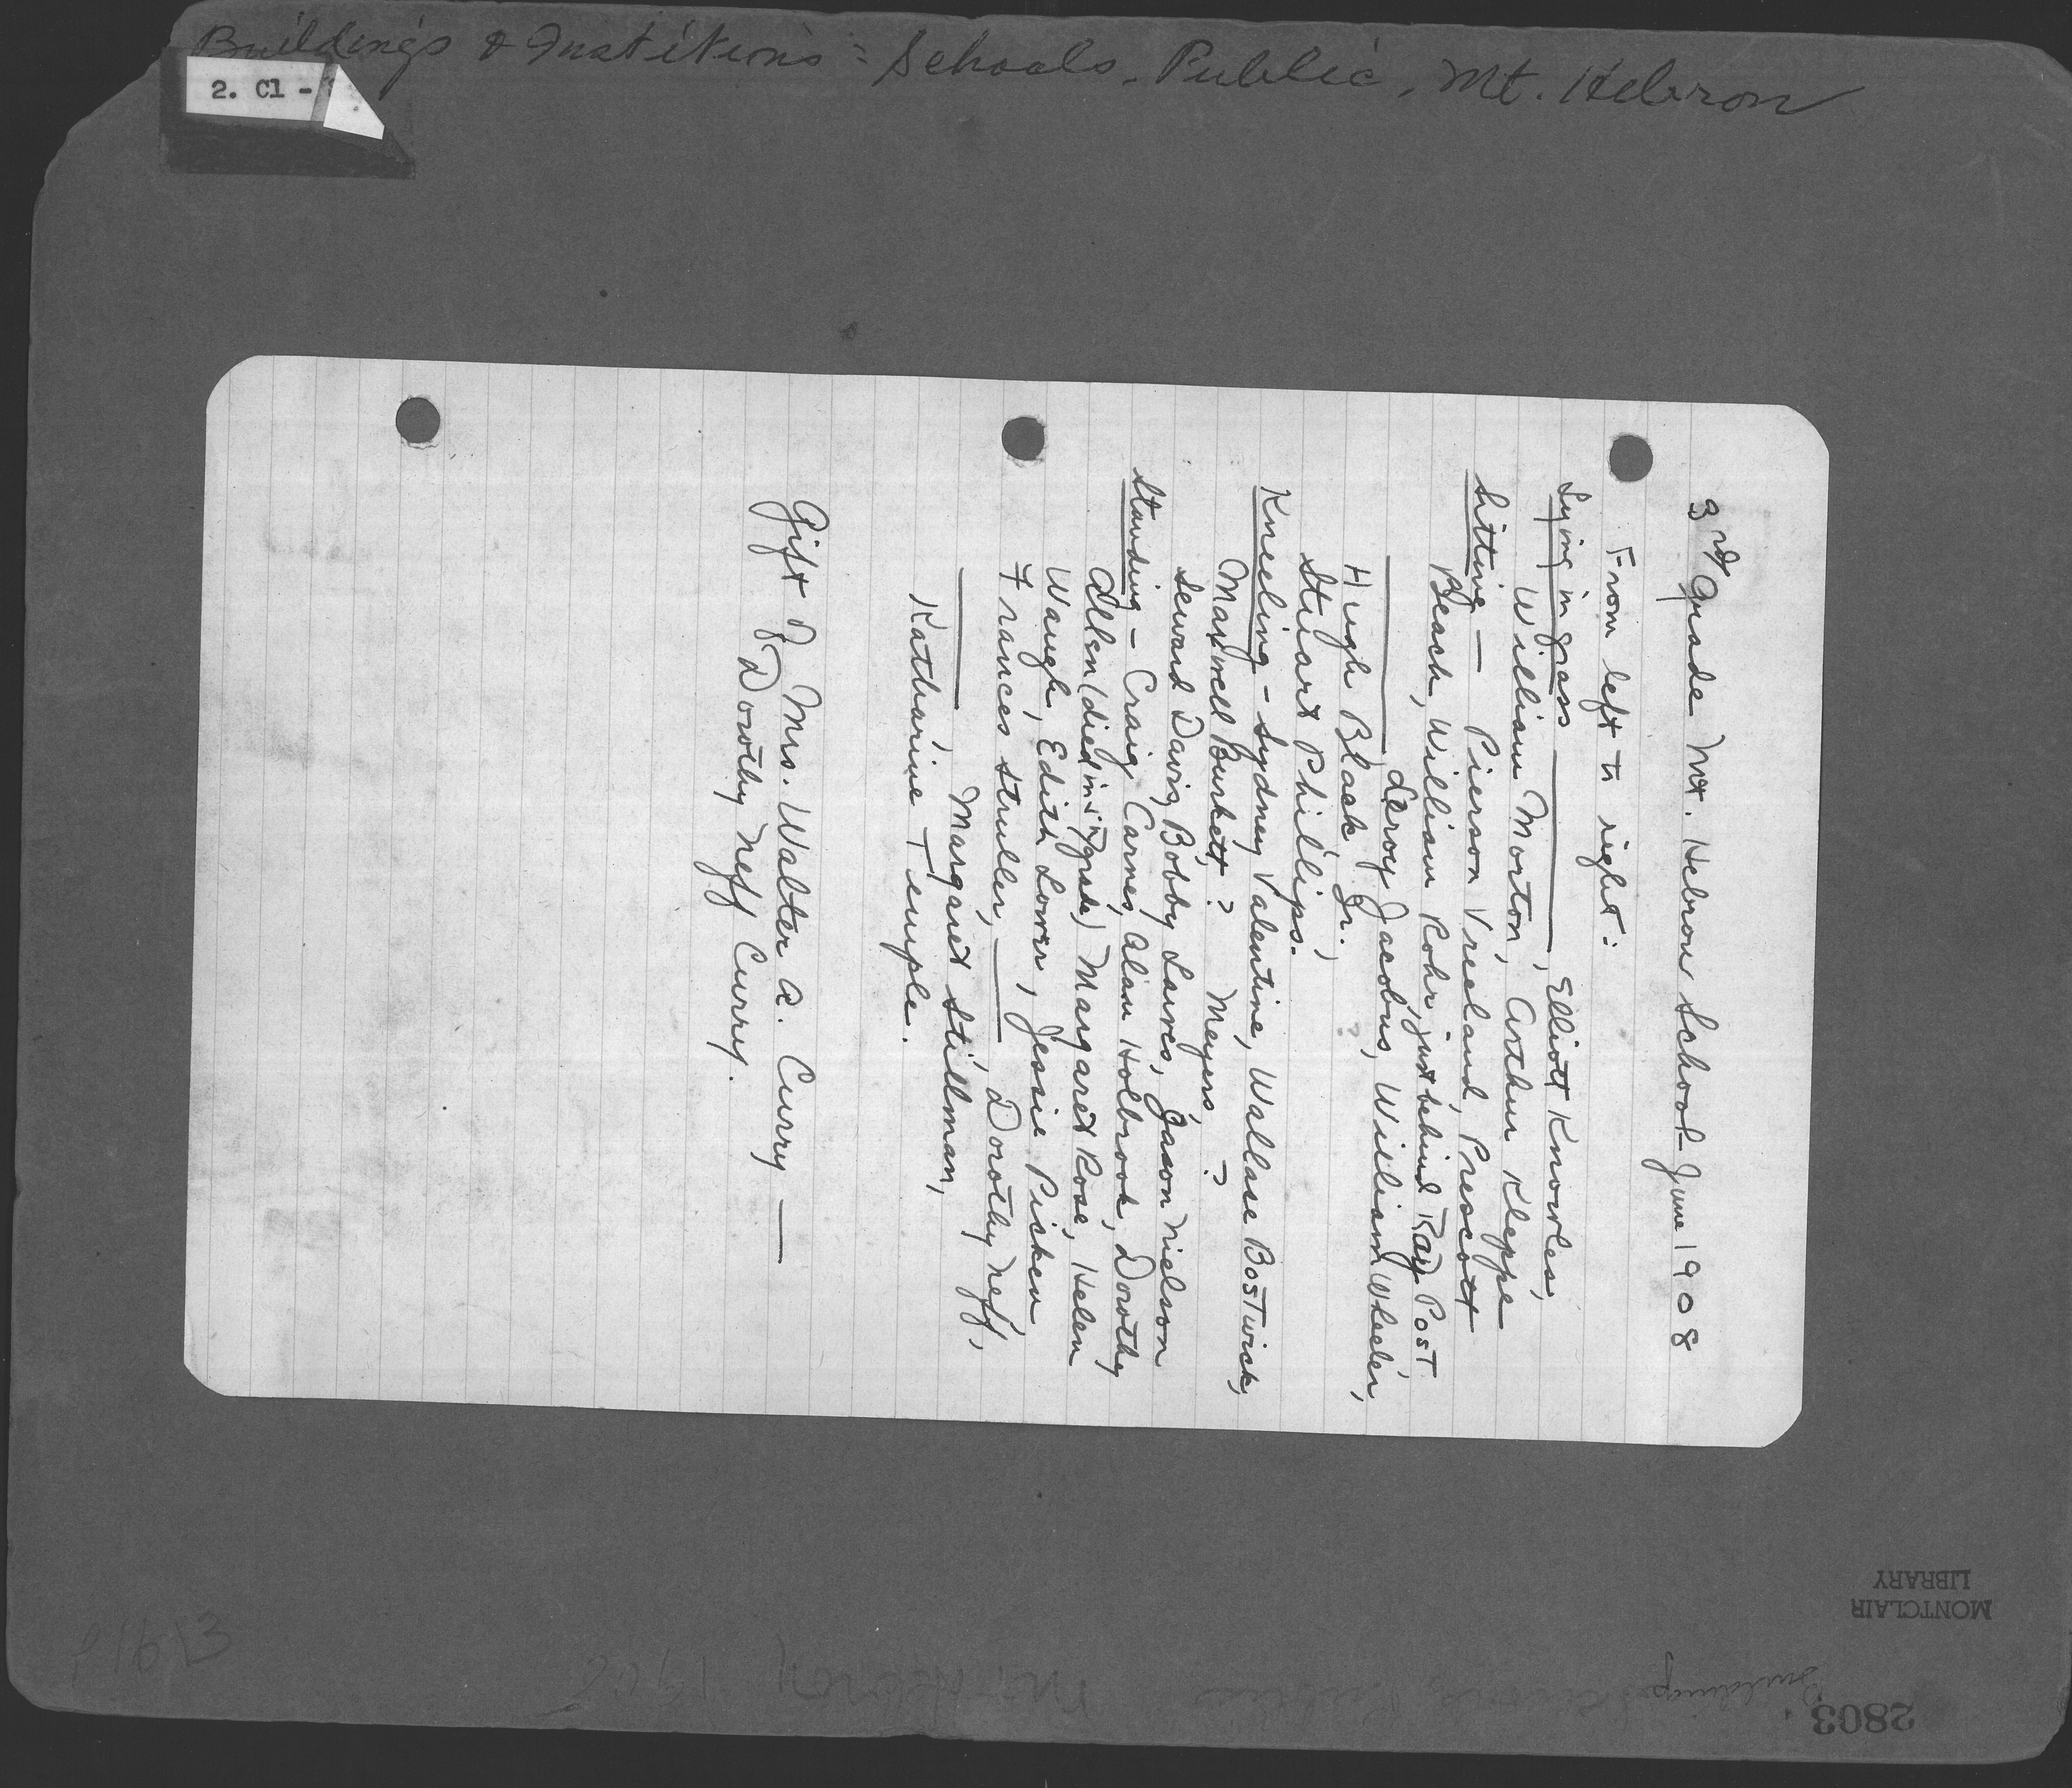 Buildings & Institions: Schools, Public, Mt. Hebron
2. Cl -
3rd Grade Mt. Hebron School - June 1908
From left to right:
Lying in grass ————, Elliott Knowles,
William Morton, Arthur Kleppe
Sitting — Pierson Vreeland, Prescott
Beach, William Rohr, just behind Ray Post,
———— Leroy Jacobus, William Wheeler,
Hugh Black Jr.,
Stuart Phillips.
Kneeling - Sydney Valentine, Wallace Bostwick,
Maxwell Burkett, ? Meyers, ?
Seward Davis, Bobby Laures, Jason Nielson
Standing - Craig Carnes, Alan Holbrook, Dorothy
Allen (died in grade) Margaret Rose, Helen
Waugh, Edith Lower, Jessie Picken,
Frances Struller, ——— Dorothy Neff,
———— Margaret Stillman,
Katharine Temple.
Gift of Mrs. Walter A. Curry —
Dorothy Neff Curry.
MONTCLAIR
LIBRARY
Buildings
Mt. Hebron, 1908
2803